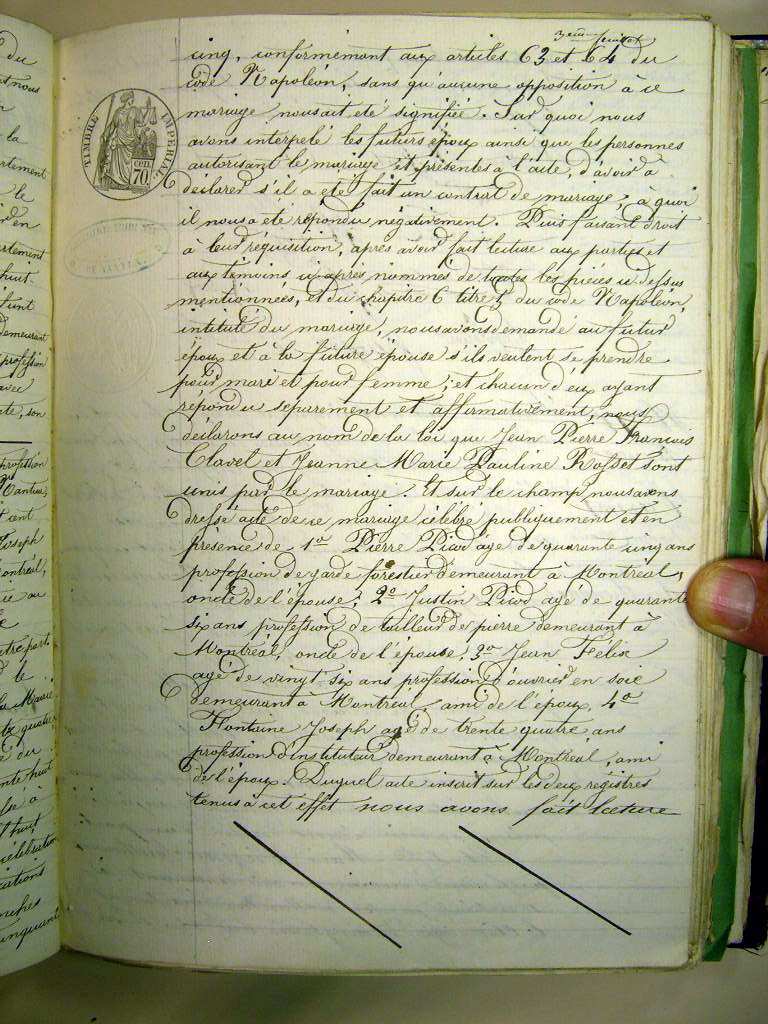 3eme feuillet
du
la
le
profession
Montréal,
Joseph
TIMBRE IMPÉRIAL
70 cen
cinq, conformément aux articles 63 et 64 du
code Napoléon, sans qu'aucune opposition à ce
mariage nous ait été signifiée. Sur quoi nous
avons interpelé les futurs époux ainsi que les personnes
autorisant le mariage et présentes à l'acte, d'avoir à
déclarer s'il a été fait un contrat de mariage; à quoi
il nous a été répondu négativement. Puis faisant droit
à leur réquisition, après avoir fait lecture aux parties et
aux témoins ci après nommés de toutes les pièces ci dessus
mentionnées, et du chapitre 6 titre 5 du code Napoléon,
intitulé du mariage, nous avons demandé au futur
époux et à la future épouse s'ils veulent se prendre
pour mari et pour femme; et chacun d'eux ayant
répondu séparement et affirmativement, nous
déclarons au nom de la loi que Jean Pierre François
Clavel et Jeanne Marie Pauline Rosset sont
unis par le mariage. Et sur le champ nous avons
dressé acte de ce mariage célébré publiquement et en
présence de 1o Pierre Picod âgé de quarante cinq ans
profession de garde forestier demeurant à Montréal,
oncle de l'épouse; 2o Justin Picod âgé de quarante
six ans profession de tailleur de pierre demeurant à
Montréal, oncle de l'épouse; 3o Jean Felix
agé de vingt-six ans profession d'ouvrier en soie
demeurant à Montréal, ami de l'époux, 4o
Fontaine Joseph agé de trente quatre ans
profession d'instituteur demeurant à Montréal, ami
de l'époux. Duquel acte inscrit sur les deux registres
tenus à cet effet nous avons fait lecture